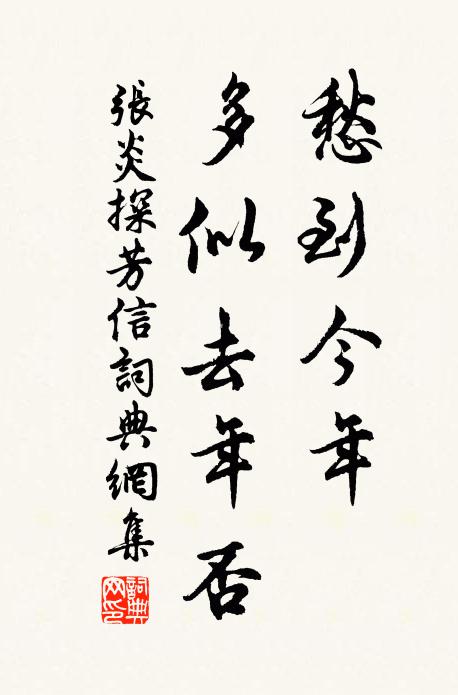 愁到今年
多似去年否
張炎探芳信詞典網集
詞典网印